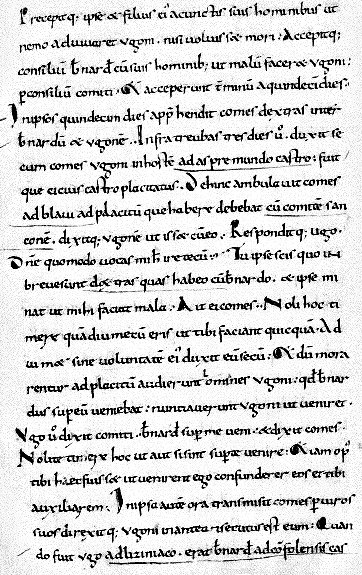 Precepitq; ipse & filius ei' a cunctis suis hominibus ut
nemo adiuuar& ugoni. nisi voluiss& mori. Accepitq;
consiliũ b'nardˀ cũ suis hominib; ut malũ facer& ugoni
p consiliũ comiti. & acceperunt t'minũ a quindeci dies.
In ipsos quindecim dies app'hendit comes dextras inter
b'nardũ & ugonẽ. Infra treubas tres dies ũ. duxit se
cum comes ugoni in hostẽ ad aspremundo castro. fuit
que ei cuis castro placitatus. Dehinc ambulauit comes
ad blaui ad placitũ que habere debebat cũ comite san
conẽ. dixitq; ugonẽ ut iss& cũ eo. Respondit q; ugo.
Dñe quomodo uocas mih' ire tecũ. Tu ipse scis quo in
breue sunt dextras quas habeo cũ b'nardo. & ipse mi
nat ut mihi faciat malũ. Ait ei comes. Noli hoc ti
mere quãdiu mecũ eris ut tibi faciant quicquã. Ad
ui m& sine uoluntatẽ ei' duxit eũ secũ. & dũ mora
rentur ad placitũ audierunt homines ugoni. qd b'nar
dus sup eũ ueniebat. nunciauerunt ugoni ut ueniret.
Vgo ũ dixit comiti. b'nardˀ sup me ueni. & dixit comes.
Nolite timere hoc ut aut si sint sup te uenire. & iam opˀ
tibi haec fuiss& ut uenirent ego confunderer eos et tibi
auxiliarem. In ipsa autẽ ora transmisit comes p uiros
suos direxit q; ugoni in antea. & secutus est eum. Quan
do fuit ugo ad liziniaco. erat b'nardˀ ad confolensis cas